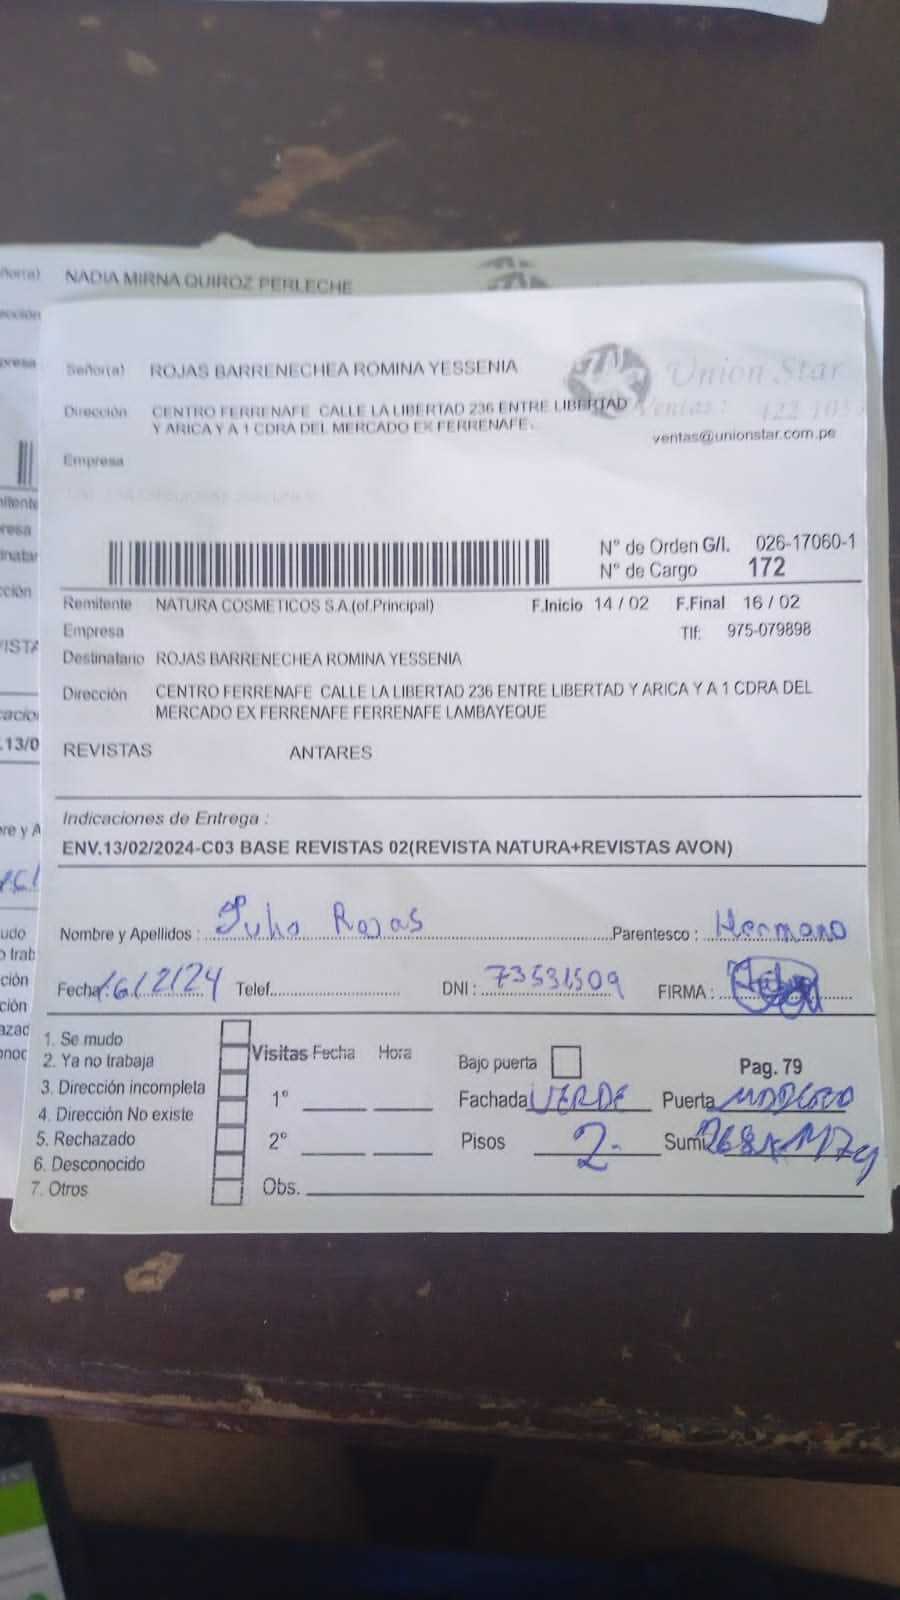 ñor(a) NADIA MIRNA QUIROZ PERLECHE
Señor(a) ROJAS BARRENECHEA ROMINA YESSENIA
Union Star
Dirección CENTRO FERRENAFE CALLE LA LIBERTAD 236 ENTRE LIBERTAD
Y ARICA Y A 1 CDRA DEL MERCADO EX FERRENAFE.
Ventas:
ventas@unionstar.com.pe
Empresa
N° de Orden G/I. 026-17060-1
N° de Cargo 172
Remitente NATURA COSMETICOS S.A.(of.Principal) F.Inicio 14 / 02 F.Final 16 / 02
Empresa Tlf: 975-079898
Destinatario ROJAS BARRENECHEA ROMINA YESSENIA
Dirección CENTRO FERRENAFE CALLE LA LIBERTAD 236 ENTRE LIBERTAD Y ARICA Y A 1 CDRA DEL
MERCADO EX FERRENAFE FERRENAFE LAMBAYEQUE
REVISTAS ANTARES
Indicaciones de Entrega :
ENV.13/02/2024-C03 BASE REVISTAS 02(REVISTA NATURA+REVISTAS AVON)
Nombre y Apellidos : Julio Rojas Parentesco : Hermano
Fecha: 16/2/24 Telef. DNI : 73531509 FIRMA :
1. Se mudo
2. Ya no trabaja
3. Dirección incompleta
4. Dirección No existe
5. Rechazado
6. Desconocido
7. Otros
Visitas Fecha Hora
1°
2°
Obs.
Bajo puerta Pag. 79
Fachada VERDE Puerta
Pisos 2- Sum